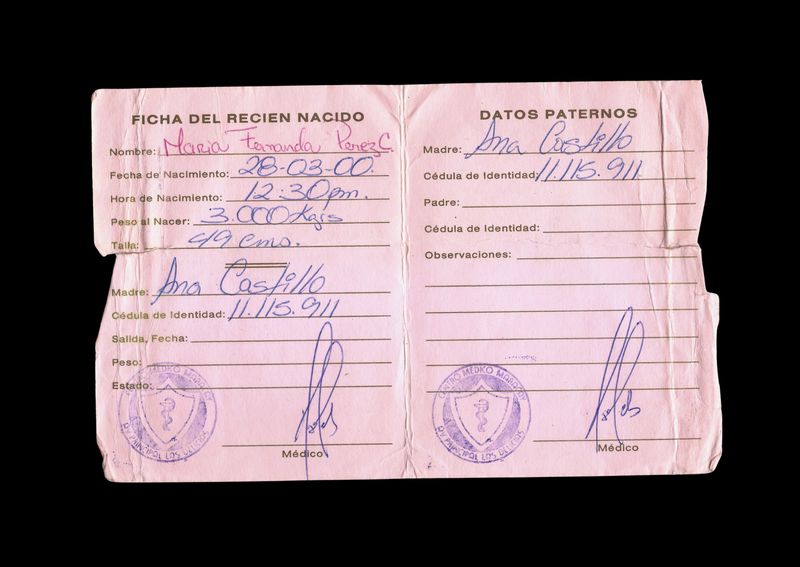 FICHA DEL RECIEN NACIDO
Nombre: Maria Fernanda Perez C.
Fecha de Nacimiento: 28-03-00.
Hora de Nacimiento: 12:30pm.
Peso al Nacer: 3.000Kgrs
Talla: 49 cms.
Madre: Ana Castillo
Cédula de Identidad: 11.115.911
Salida, Fecha:
Peso:
Estado:
CENTRO MEDICO
AV PRINCIPAL LOS
Médico
DATOS PATERNOS
Madre: Ana Castillo
Cédula de Identidad: 11.115.911
Padre:
Cédula de Identidad:
Observaciones:
CENTRO MEDICO
AV PRINCIPAL LOS
Médico